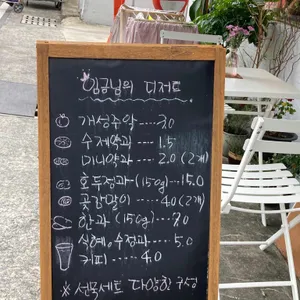 임금님의 디저트
개성주악 ---- 3.0
수제약과 ---- 1.5
미니약과 ---- 2.0 (2개)
호두정과 (150g) --- 15.0
곶감말이 ---- 4.0 (2개)
한과 (150g) --- 7.0
식혜, 수정과 ---- 5.0
커피 ---- 4.0
※ 선물세트 다양한 구성